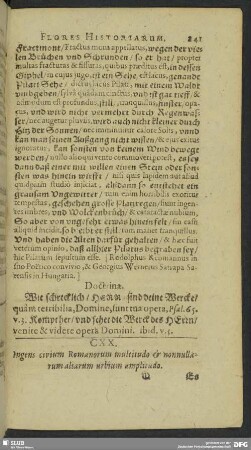 FLORES HISTORIARUM. 241
Fractmont/Fractus mons appellatus, wegen der vie-
len Brüchen und Schrunden/ so er hat/ propter
multas fracturas & fissuras, quibus præditus est, in dessen
Gipfel/in cujus jugo, ist ein Sehe, est lacus, genande
Pilati Sehe/ dictus lacus Pilati, mit einem Waldt
umbgeben, cinctus und ist gar tieff/ &
admodum est profundus, still, tranquillus, finster, opa-
cus, und wird nicht vermehrt durch Regenwas-
ser/ nec augetur pluviâ, werd auch nicht kleiner durch
Hitz der Sonnen/ nec minuitur calore Solis, unnd
kan man seinen Außgang nicht wissen/ & ejus exitus
ignoratur; kan sonsten von keinem Wind bewegt
werden/ nullo alioqui vento commoveri potest, es sey
denn daß einer mit willen einen Stein oder sonsten
was hinein wirfft/ nisi quis lapidem aut aliud
quidpiam studio iniiciat, alsdann so entstehet ein
grausam Ungewitter/ tum enim horribilis exoritur
tempestas, geschehen grosse Platzregen/ fiunt ingen-
tes imbres, und Wolckenbrüch/ & cataractæ nubium,
So aber von ungefehr etwas hinein felt/ sin aliquid
incidit, so bleibt es still/ tum manet tranquillus.
Und haben die Alten darfür gehalten/ & hæc fuit
veterum opinio, daß allhier Pilatus begraben sey/
hic Pilatum sepultum esse. [Rodolphus
& Georgius
Doctrina.
Wie schrecklich/ HErr/ sind deine Wercke/
quàm terribilia, Domine, sunt tua opera, Psal. 65.
v. 3. Kompt her/ und sehet die Werck des HErrn/
venite & videte opera Domini. ibid. v. 5.
CXX.
Ingens civium Romanorum multitudo & nonnulla-
rum aliarum urbium amplitudo.
Q Es
SLUB